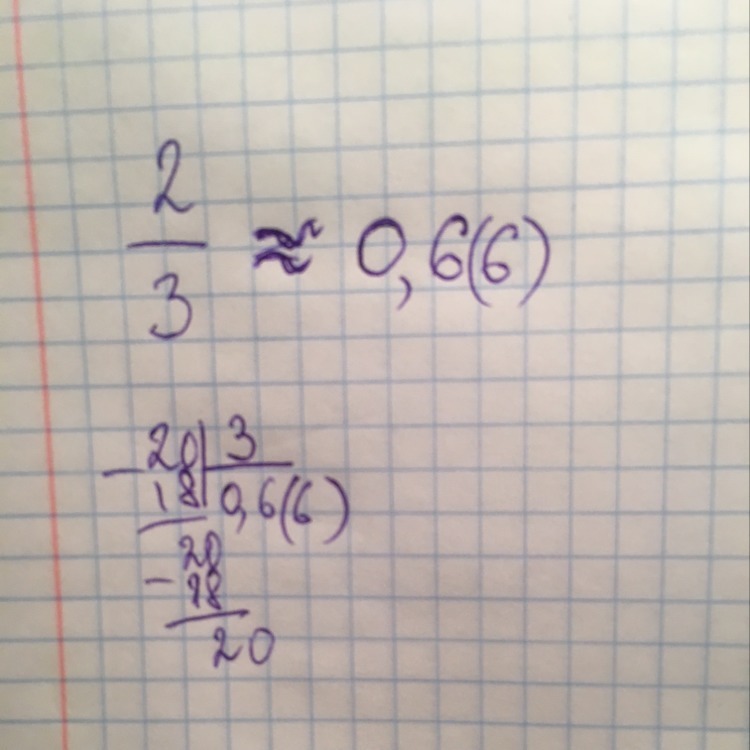 2
3 ≈ 0,6(6)
−20 3
18 0,6(6)
−20
18
20